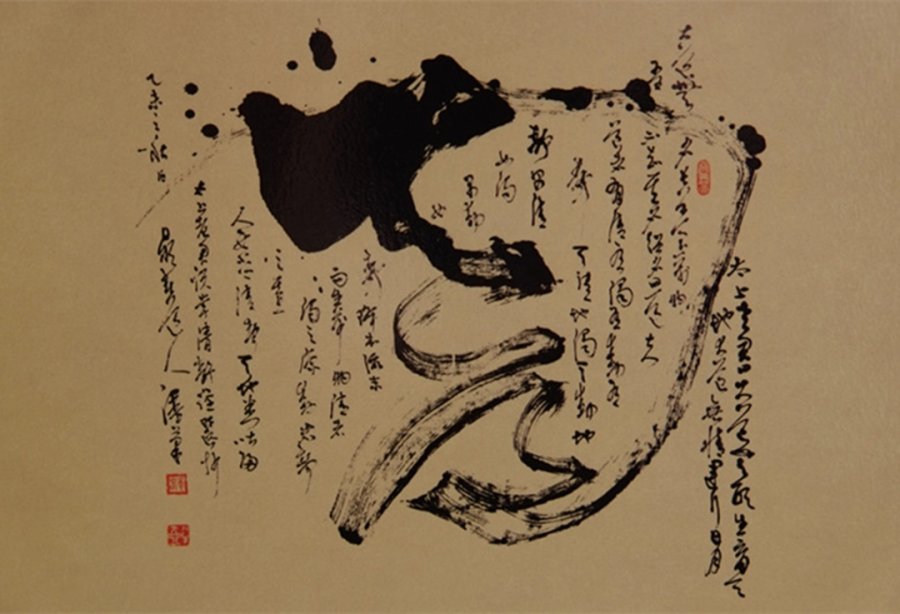 太上老君曰大道無形生育天
地大道無情運行日月
大道無
吾
不知其名強名曰道夫
道者有清有濁有動有
靜 天清地濁天動地
靜男清
女濁
男動
女
靜降本流末
而生萬物清者
濁之源動者靜
之基
人能常清靜天地悉皆歸
太上老君說常清靜經
道人
乙亥之秋日